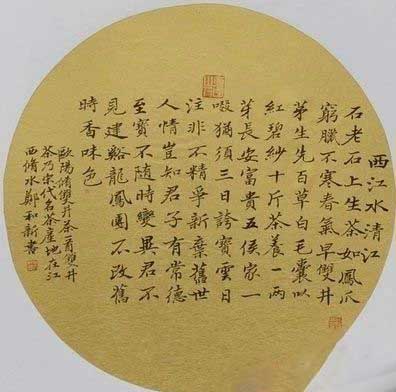 西江水清江
石老石上生茶如鳳爪
窮臘不寒春氣早雙井
茅生先百草白毛囊以
紅碧紗十斤茶養一兩
芽長安富貴五侯家一
啜猶須三日誇寶雲日
注非不精爭新棄舊世
人情豈知君子有常德
至寶不隨時變異君不
見建谿龍鳳團不改舊
時香味色
歐陽脩雙井茶雙井
茶乃宋代名茶產地在江
西脩水鄭和新書